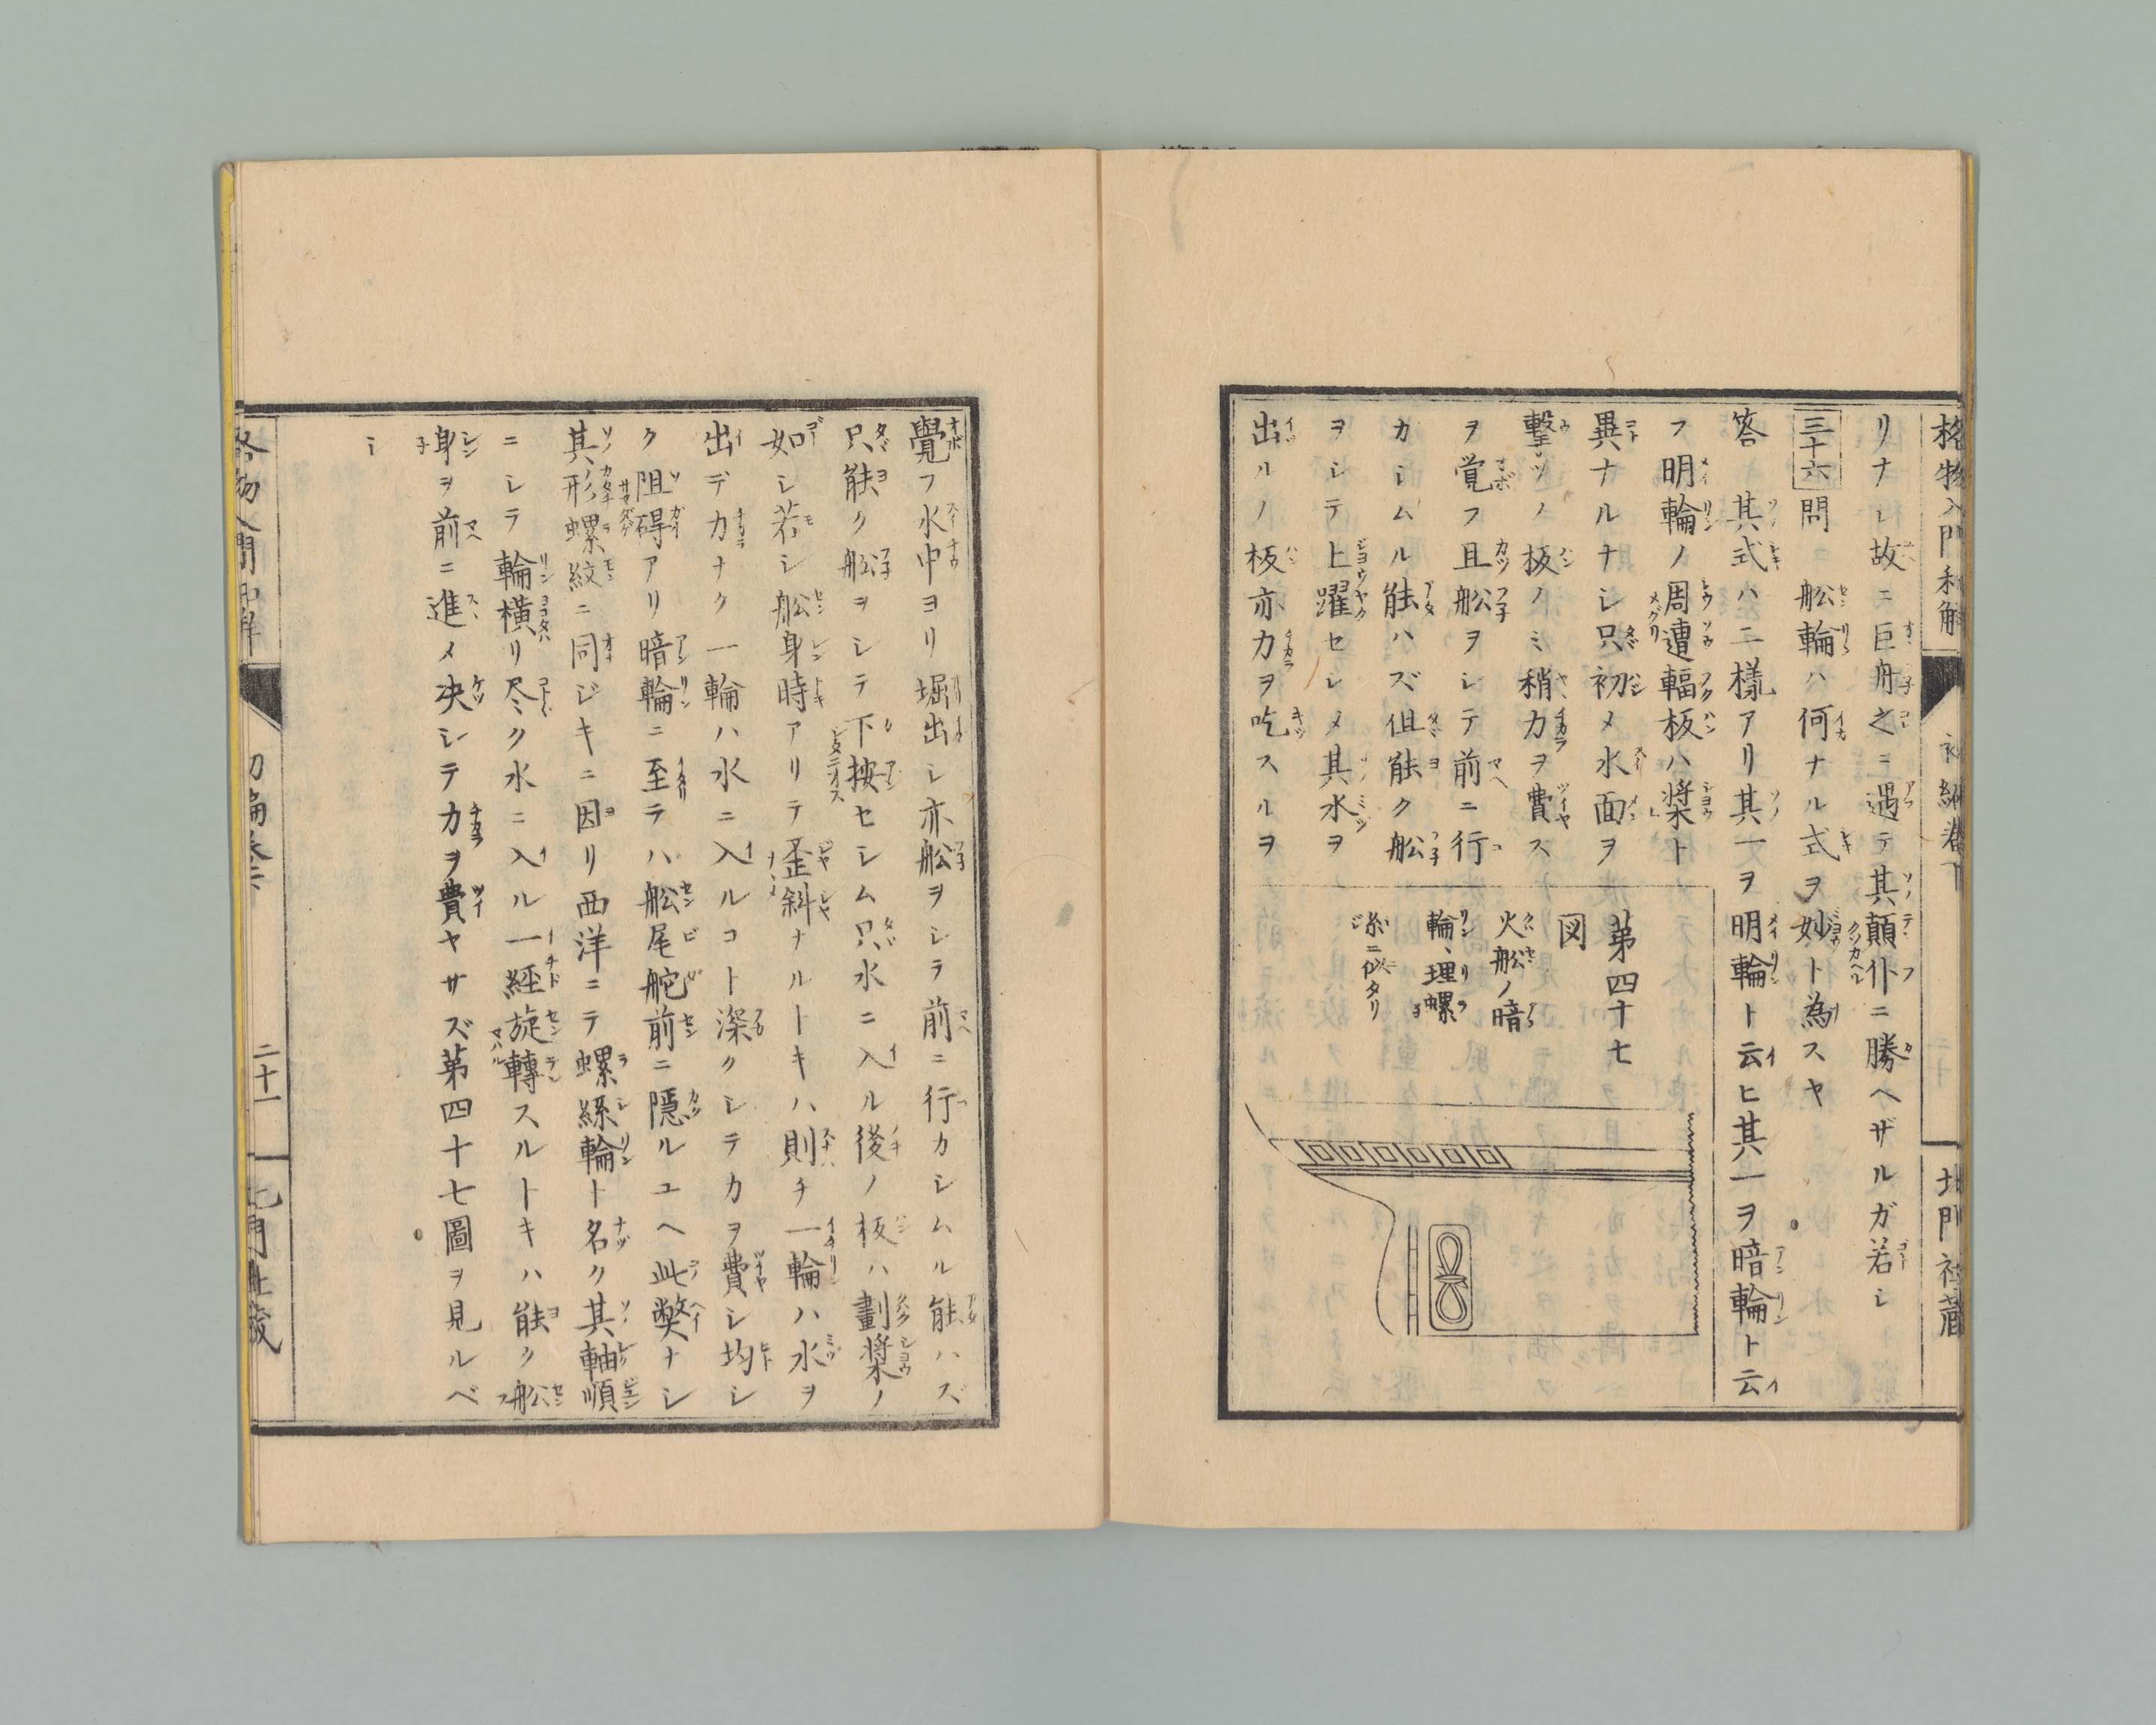 格物入門和解
初編巻下
北門社蔵
リナシ故ニ巨舟之ニ遇テ其顛仆ニ勝ヘザルガ若シ
三十六問 舩輪ハ何ナル式ヲ妙ト為スヤ
答 其式ハ二樣アリ其一ヲ明輪ト云ヒ其一ヲ暗輪ト云
フ明輪ノ周遭輻板ハ槳ト
異ナルナシ只初メ水面ヲ
擊ツノ板ノミ稍力ヲ費ス
ヲ覚フ且舩ヲシテ前ニ行
カシムル能ハズ但能ク舩
ヲシテ上躍セシメ其水ヲ
出ルノ板亦力ヲ吃スルヲ
第四十七
図
火舩ノ暗
輪、理螺
糸ニ似タリ
覺フ水中ヨリ堀出シ亦舩ヲシテ前ニ行カシムル能ハズ
只能ク舩ヲシテ下按セシム只水ニ入ル後ノ板ハ劃槳ノ
如シ若シ舩身時アリテ歪斜ナルトキハ則チ一輪ハ水ヲ
出デ力ナク一輪ハ水ニ入ルコト深クシテ力ヲ費シ均シ
ク阻碍アリ暗輪ニ至テハ舩尾舵前ニ隠ルユヘ此弊ナシ
其形螺紋ニ同ジキニ因リ西洋ニテ螺絲輪ト名ク其軸順
ニシテ輪横リ尽ク水ニ入ル一経旋轉スルトキハ能ク舩
身ヲ前ニ進メ决シテ力ヲ費ヤサズ第四十七圖ヲ見ルベ
シ
二十一